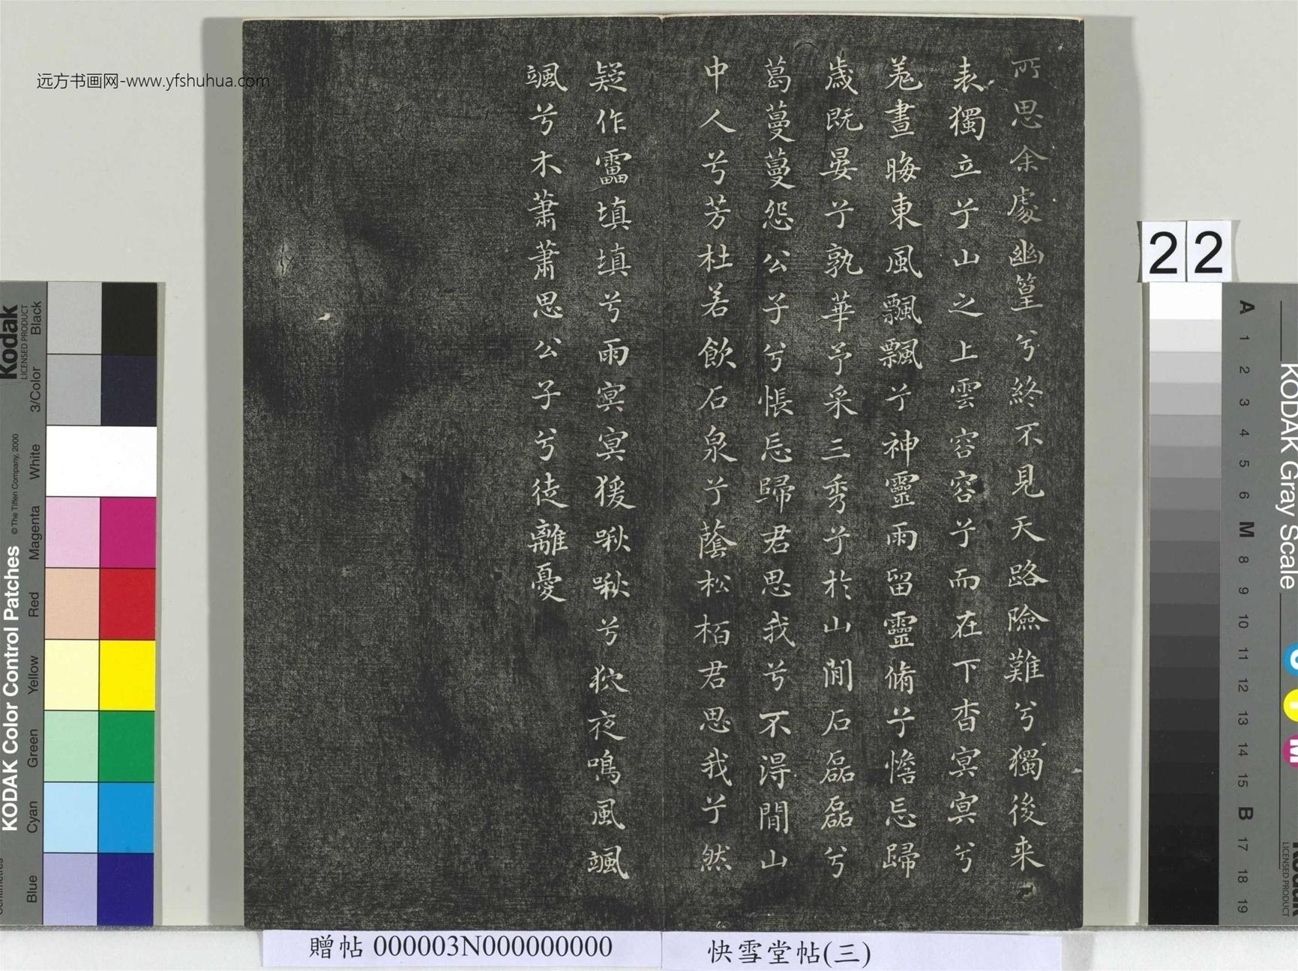 远方书画网-www.yfshuhua.com
所思余處幽篁兮終不見天路險難兮獨後来
表獨立兮山之上雲容容兮而在下杳冥冥兮
羌晝晦東風飄飄兮神靈雨留靈脩兮憺忘歸
歲既晏兮孰華予采三秀兮於山閒石磊磊兮
葛蔓蔓怨公子兮悵忘歸君思我兮不得閒山
中人兮芳杜若飲石泉兮蔭松栢君思我兮然
疑作靁填填兮雨冥冥猨啾啾兮狖夜鳴風颯
颯兮木蕭蕭思公子兮徒離憂
22
贈帖 000003N000000000
快雪堂帖(三)
Kodak
LICENSED PRODUCT
KODAK Color Control Patches
© The Tiffen Company, 2000
Blue
Cyan
Green
Yellow
Red
Magenta
White
3/Color
Black
KODAK Gray Scale
A 1 2 3 4 5 6 M 8 9 10 11 12 13 14 15 B 17 18 19